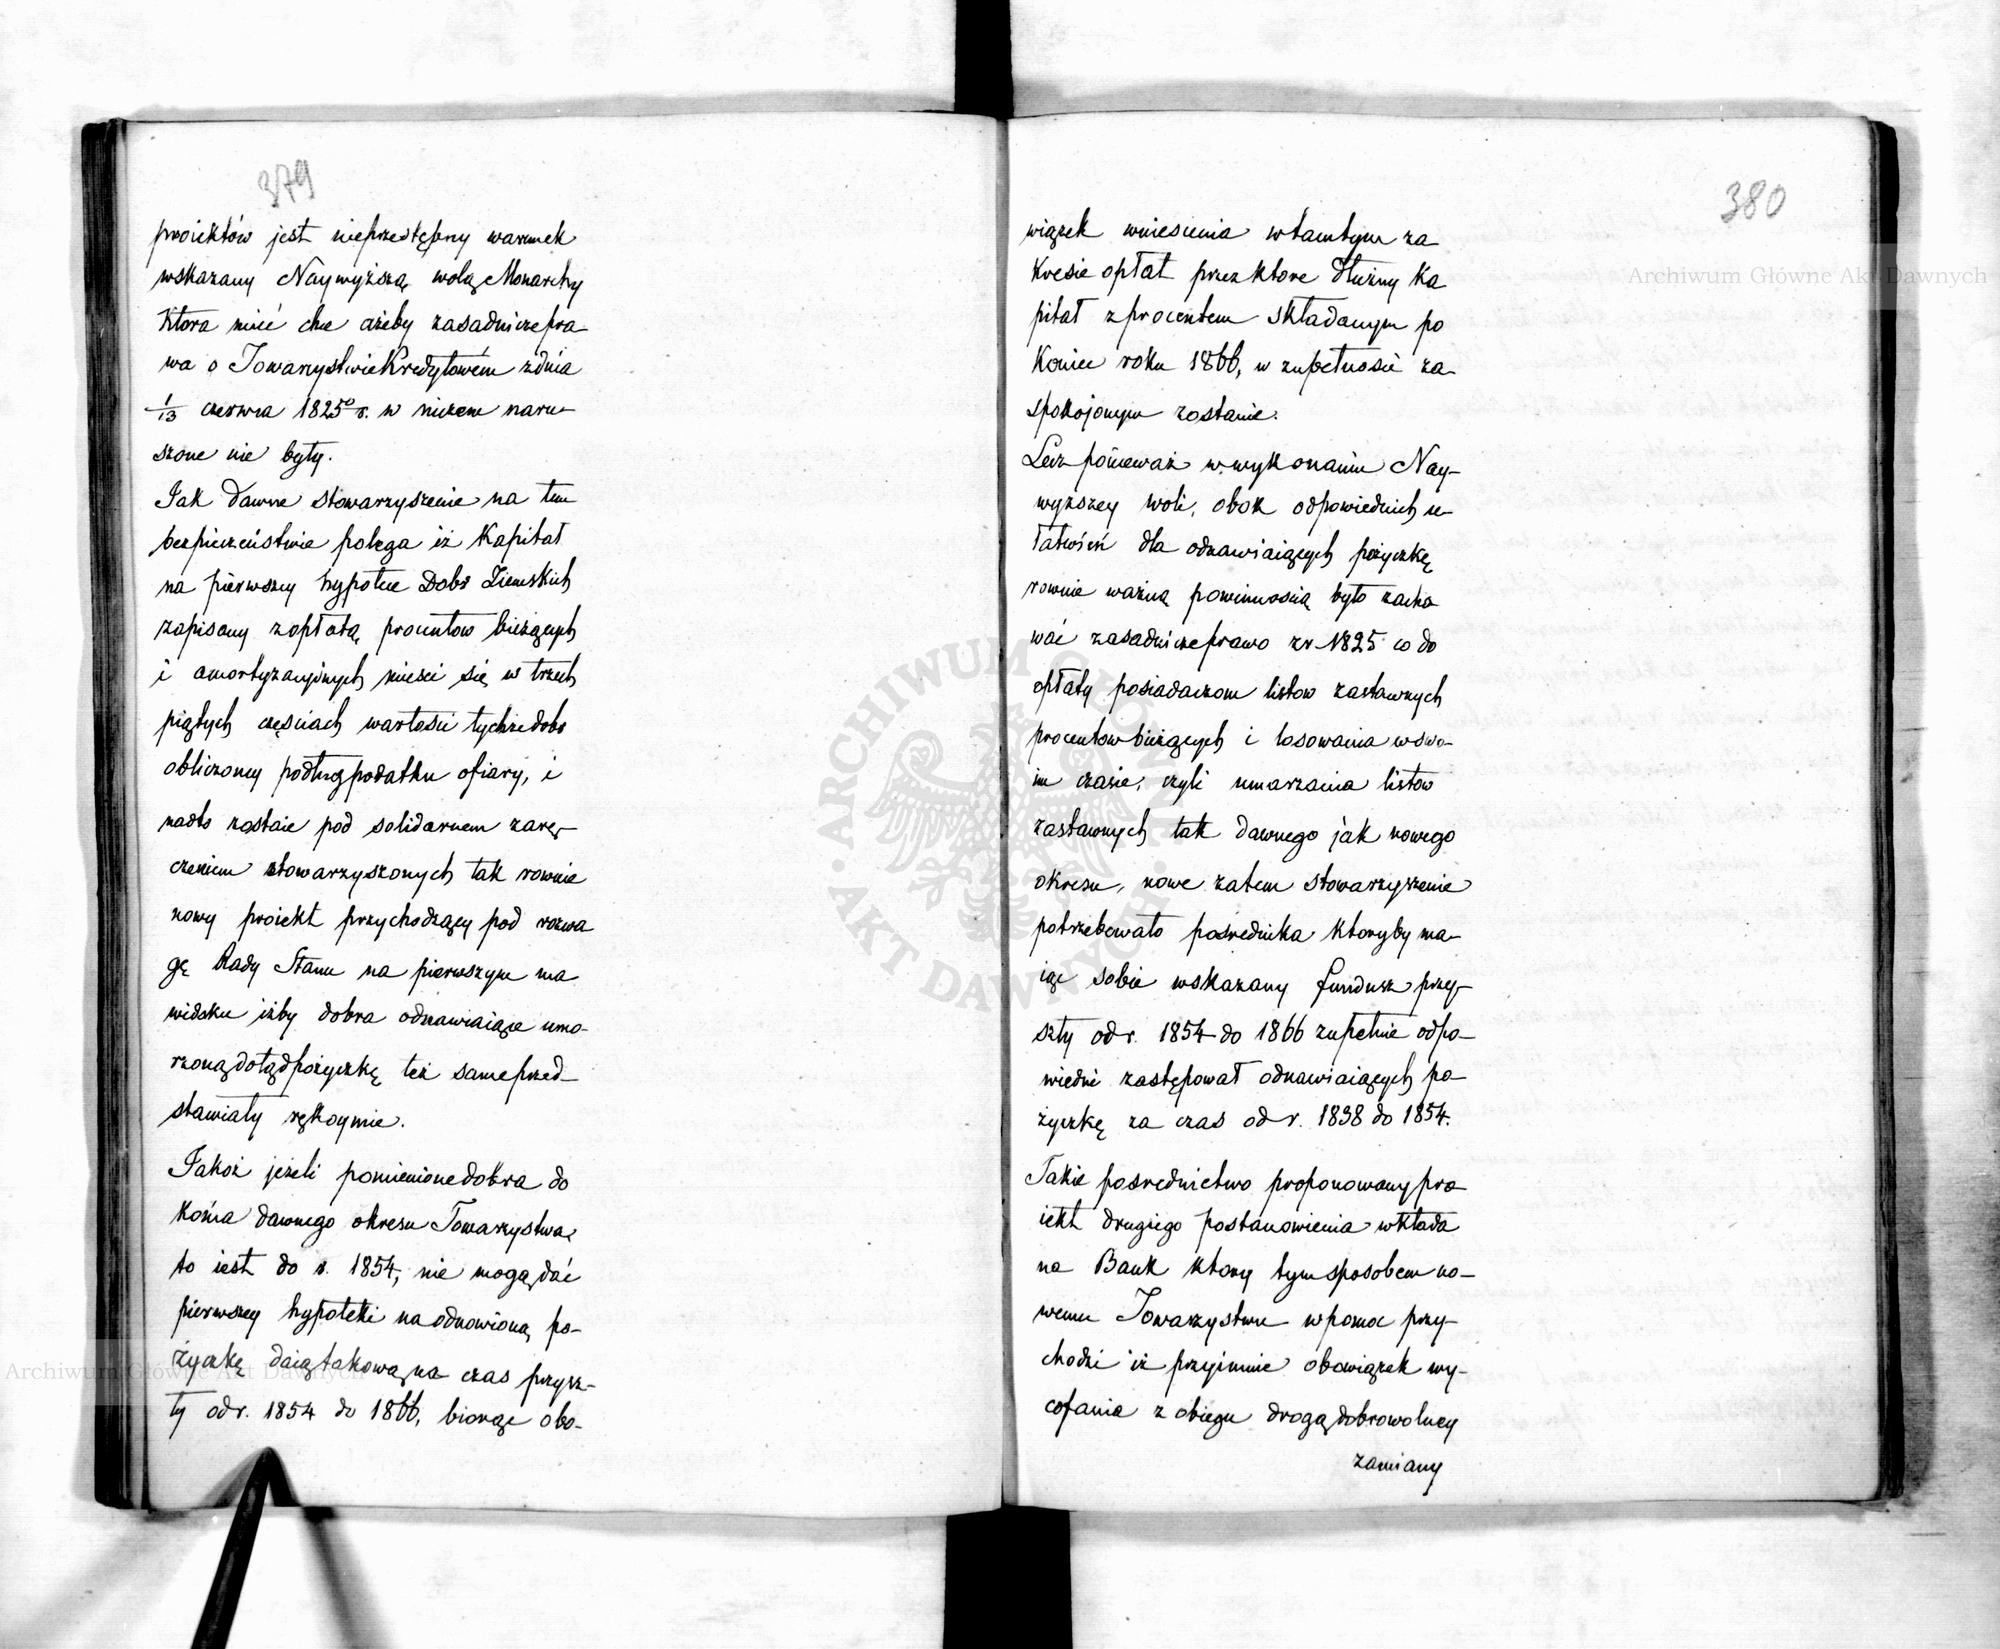 379
proiektów jest nieprzestępny warunek
wskazany Naywyższą wolą Monarchy
która mieć chce ażeby zasadnicze pra-
wa o Towarzystwie Kredytowém zdnia
1/13 czerwca 1825º r. w niczem naru-
szone nie były.
Jak dawne stowarzyszenie na tem
bezpieczeństwie polega iż Kapitał
na pierwszey hypotece Dobr Ziemskich
zapisany zopłatą procentow bieżących
i amortyzacyjnych mieści się w trzech
piątych częściach wartości tychże dobr
obliczoney podług podatku ofiary, i
nadto zostaie pod solidarnem zarę-
czeniem stowarzyszonych tak rownie
nowy proiekt przychodzący pod rozwa
gę Rady Stanu na pierwszym ma
widoku iżby dobra odnawiaiące umo-
rzoną dotąd pożyczkę też same przed-
stawiały rękoymie.
Jakoż jeżeli pomienione dobra do
końca dawnego okresu Towarzystwa,
to iest do r. 1854, nie mogą dać
pierwszey hypoteki na odnowioną po-
życzkę daią takową na czas przysz-
ły od r. 1854 do 1866, biorąc obo-
380
wiązek wniesienia w tamtym za
kresie opłat przez ktore dłużny ka
pitał z procentem składanym po
koniec roku 1866, w zupełności za-
spokojonym zostanie.
Lecz ponieważ w wykonaniu Nay-
wyższey woli, obok odpowiednich u-
łatwień dla odnawiaiących pożyczkę
rownie ważną powinnością było zacho
wać zasadnicze prawo z r 1825 co do
opłaty posiadaczom listow zastawnych
procentow bieżących i losowania w swo-
im czasie, czyli umarzania listow
zastawnych tak dawnego jak nowego
okresu, nowe zatem stowarzyszenie
potrzebowało posrednika ktoryby ma-
iąc sobie wskazany fundusz przy-
szły od r. 1854 do 1866 zupełnie odpo-
wiedni zastępował odnawiaiących po-
życzkę za czas od r. 1838 do 1854.
Takie posrednictwo proponowany pro
iekt drugiego postanowienia wkłada
na Bank ktory tym sposobem no-
wemu Towarzystwu w pomoc przy-
chodzi iż przyimuie obowiązek wy-
cofania z obiegu drogą dobrowolney
zamiany
Archiwum Główne Akt Dawnych
Archiwum Główne Akt Dawnych
ARCHIWUM GŁÓWNE AKT DAWNYCH